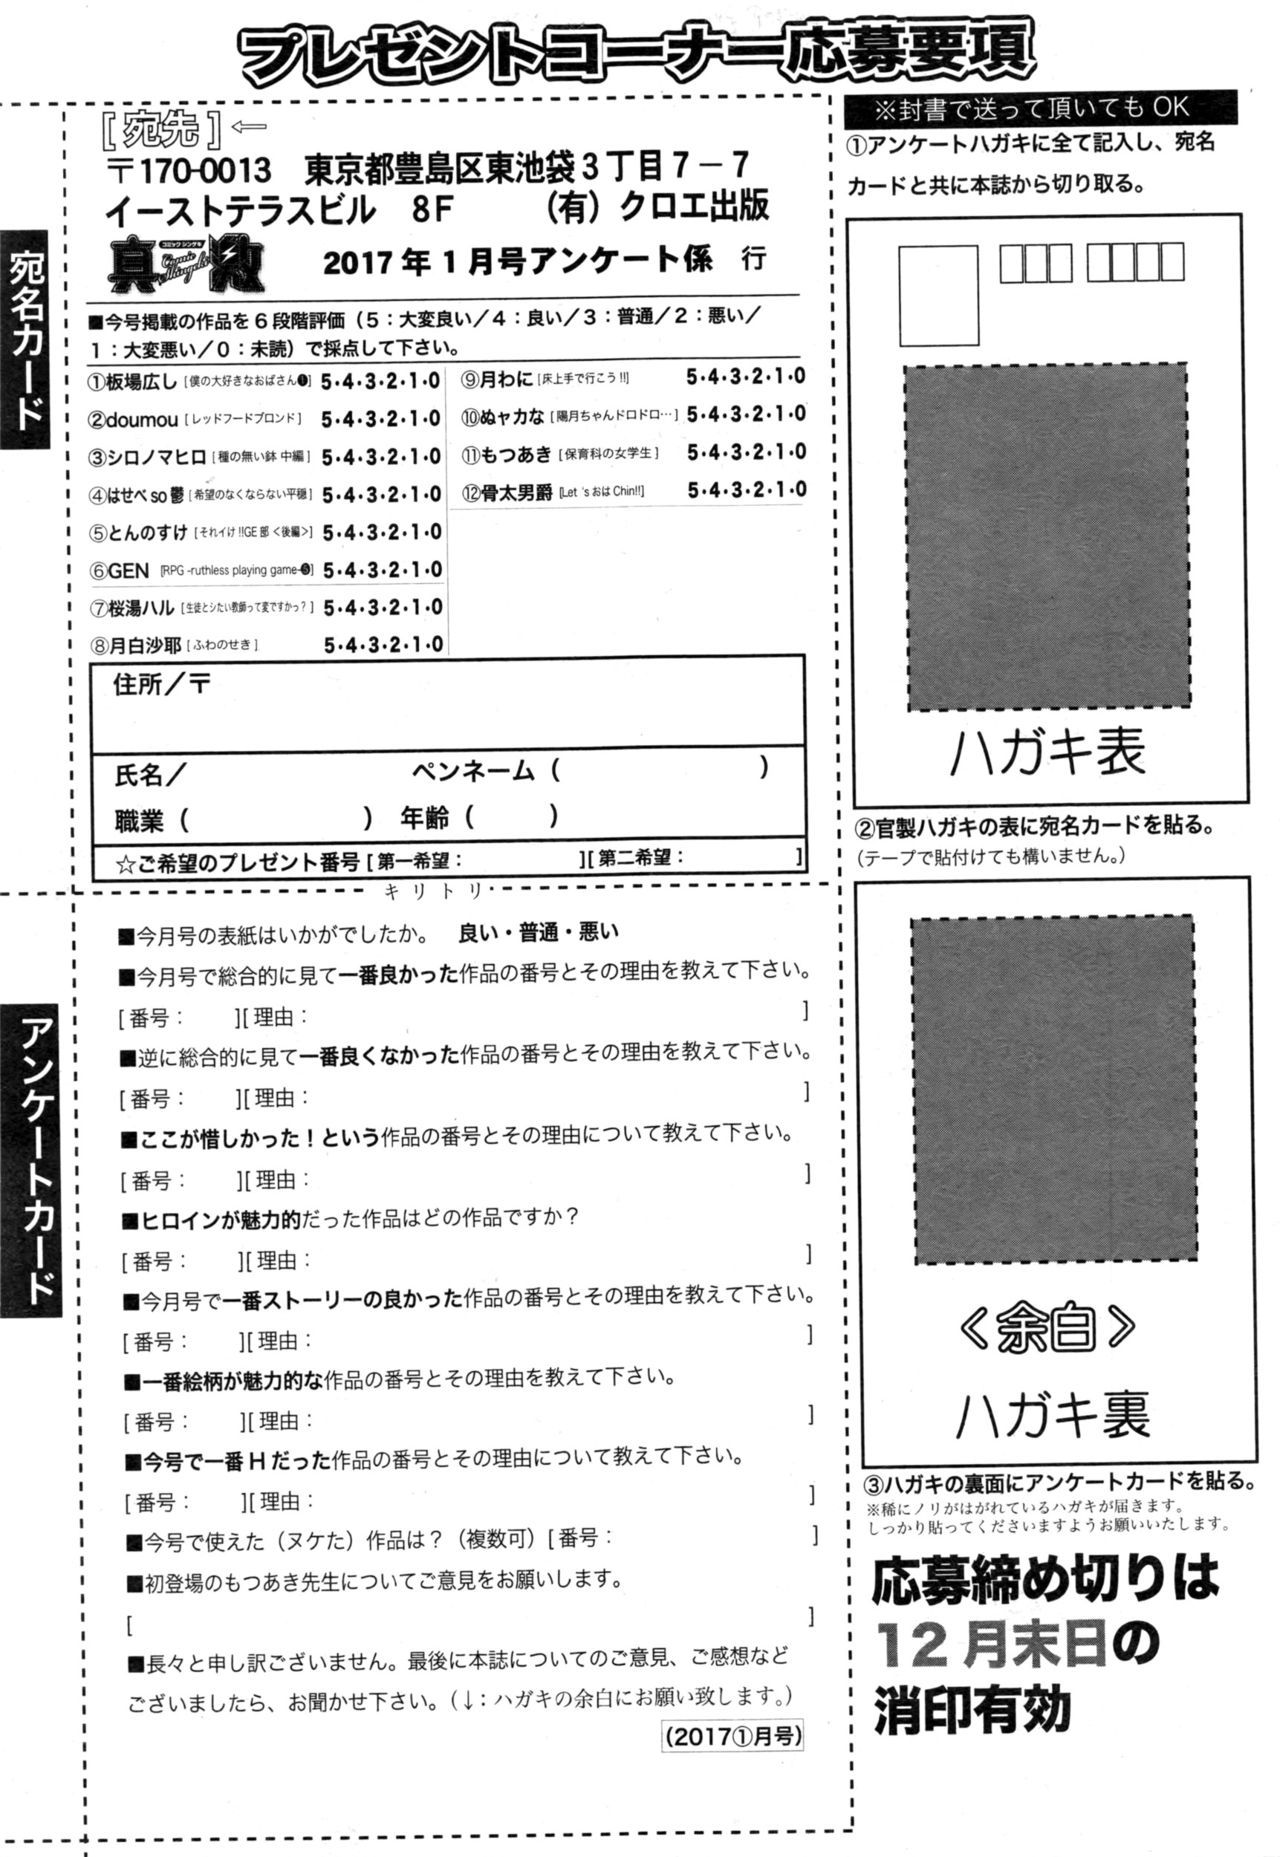 プレゼントコーナー応募要項
[宛先]←
〒170-0013 東京都豊島区東池袋3丁目7－7
イーストテラスビル 8F (有) クロエ出版
コミック シンゲキ
真激
Comic Shingeki
2017年1月号アンケート係 行
■今号掲載の作品を6段階評価（5：大変良い／4：良い／3：普通／2：悪い／
1：大変悪い／0：未読）で採点して下さい。
①板場広し [僕の大好きなおばさん❶] 5・4・3・2・1・0
②doumou [レッドフードブロンド] 5・4・3・2・1・0
③シロノマヒロ [種の無い鉢 中編] 5・4・3・2・1・0
④はせべso鬱 [希望のなくならない平穏] 5・4・3・2・1・0
⑤とんのすけ [それイけ!!GE部＜後編＞] 5・4・3・2・1・0
⑥GEN [RPG -ruthless playing game-❺] 5・4・3・2・1・0
⑦桜湯ハル [生徒とシたい教師って変ですかっ？] 5・4・3・2・1・0
⑧月白沙耶 [ふわのせき] 5・4・3・2・1・0
⑨月わに [床上手で行こう!!] 5・4・3・2・1・0
⑩ぬャカな [陽月ちゃんドロドロ…] 5・4・3・2・1・0
⑪もつあき [保育科の女学生] 5・4・3・2・1・0
⑫骨太男爵 [Let 'sおはChin!!] 5・4・3・2・1・0
住所／〒
氏名／ ペンネーム（ ）
職業（ ） 年齢（ ）
☆ご希望のプレゼント番号 [第一希望： ][第二希望： ]
キリトリ
宛名カード
アンケートカード
■今月号の表紙はいかがでしたか。 良い・普通・悪い
■今月号で総合的に見て一番良かった作品の番号とその理由を教えて下さい。
[番号： ][理由： ]
■逆に総合的に見て一番良くなかった作品の番号とその理由を教えて下さい。
[番号： ][理由： ]
■ここが惜しかった！という作品の番号とその理由について教えて下さい。
[番号： ][理由： ]
■ヒロインが魅力的だった作品はどの作品ですか？
[番号： ][理由： ]
■今月号で一番ストーリーの良かった作品の番号とその理由を教えて下さい。
[番号： ][理由： ]
■一番絵柄が魅力的な作品の番号とその理由を教えて下さい。
[番号： ][理由： ]
■今号で一番Hだった作品の番号とその理由について教えて下さい。
[番号： ][理由： ]
■今号で使えた（ヌケた）作品は？（複数可）[番号： ]
■初登場のもつあき先生についてご意見をお願いします。
[ ]
■長々と申し訳ございません。最後に本誌についてのご意見、ご感想など
ございましたら、お聞かせ下さい。（↓：ハガキの余白にお願い致します。）
(2017①月号)
※封書で送って頂いてもOK
①アンケートハガキに全て記入し、宛名
カードと共に本誌から切り取る。
ハガキ表
②官製ハガキの表に宛名カードを貼る。
（テープで貼付けても構いません。）
＜余白＞
ハガキ裏
③ハガキの裏面にアンケートカードを貼る。
※稀にノリがはがれているハガキが届きます。
しっかり貼ってくださいますようお願いいたします。
応募締め切りは
12月末日の
消印有効